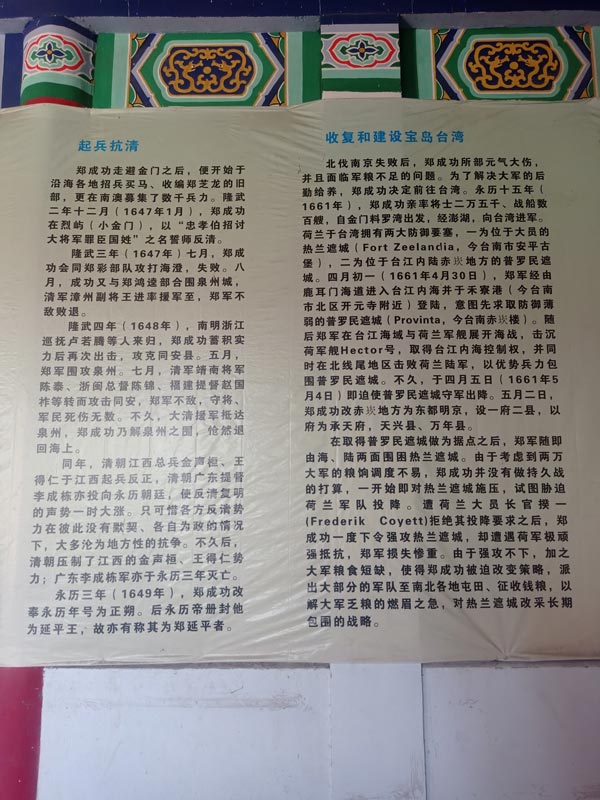 起兵抗清
郑成功走避金门之后，便开始于
沿海各地招兵买马、收编郑芝龙的旧
部，更在南澳募集了数千兵力。隆武
二年十二月（1647年1月），郑成功
在烈屿（小金门），以“忠孝伯招讨
大将军罪臣国姓”之名誓师反清。
隆武三年（1647年）七月，郑成
功会同郑彩部队攻打海澄，失败。八
月，成功又与郑鸿逵部合围泉州城，
清军漳州副将王进率援军至，郑军不
敌败退。
隆武四年（1648年），南明浙江
巡抚卢若腾等人来归，郑成功蓄积实
力后再次出击，攻克同安县。五月，
郑军围攻泉州。七月，清军靖南将军
陈泰、浙闽总督陈锦、福建提督赵国
祚等转而攻击同安，郑军不敌，守将、
军民死伤无数。不久，大清援军抵达
泉州，郑成功乃解泉州之围，怆然退
回海上。
同年，清朝江西总兵金声桓、王
得仁于江西起兵反正，清朝广东提督
李成栋亦投向永历朝廷，使反清复明
的声势一时大涨。只可惜各方反清势
力在彼此没有默契、各自为政的情况
下，大多沦为地方性的抗争。不久后，
清朝压制了江西的金声桓、王得仁势
力；广东李成栋军亦于永历三年灭亡。
永历三年（1649年），郑成功改
奉永历年号为正朔。后永历帝册封他
为延平王，故亦有称其为郑延平者。
收复和建设宝岛台湾
北伐南京失败后，郑成功所部元气大伤，
并且面临军粮不足的问题。为了解决大军的后
勤给养，郑成功决定前往台湾。永历十五年（
1661年），郑成功亲率将士二万五千、战船数
百艘，自金门料罗湾出发，经澎湖，向台湾进军。
荷兰于台湾拥有两大防御要塞，一为位于大员的
热兰遮城（Fort Zeelandia，今台南市安平古
堡），二为位于台江内陆赤崁地方的普罗民遮
城。四月初一（1661年4月30日），郑军经由
鹿耳门海道进入台江内海并于禾寮港（今台南
市北区开元寺附近）登陆，意图先求取防御薄
弱的普罗民遮城（Provinta，今台南赤崁楼）。随
后郑军在台江海域与荷兰军舰展开海战，击沉
荷军舰Hector号，取得台江内海控制权，并同
时在北线尾地区击败荷兰陆军，以优势兵力包
围普罗民遮城。不久，于四月五日（1661年5
月4日）即迫使普罗民遮城守军出降。五月二日，
郑成功改赤崁地方为东都明京，设一府二县，以
府为承天府，天兴县、万年县。
在取得普罗民遮城做为据点之后，郑军随即
由海、陆两面围困热兰遮城。由于考虑到两万
大军的粮饷调度不易，郑成功并没有做持久战
的打算，一开始即对热兰遮城施压，试图胁迫
荷兰军队投降。遭荷兰大员长官揆一
(Frederik Coyett)拒绝其投降要求之后，郑
成功一度下令强攻热兰遮城，却遭遇荷军极顽
强抵抗，郑军损失惨重。由于强攻不下，加之
大军粮食短缺，使得郑成功被迫改变策略，派
出大部分的军队至南北各地屯田、征收钱粮，以
解大军乏粮的燃眉之急，对热兰遮城改采长期
包围的战略。